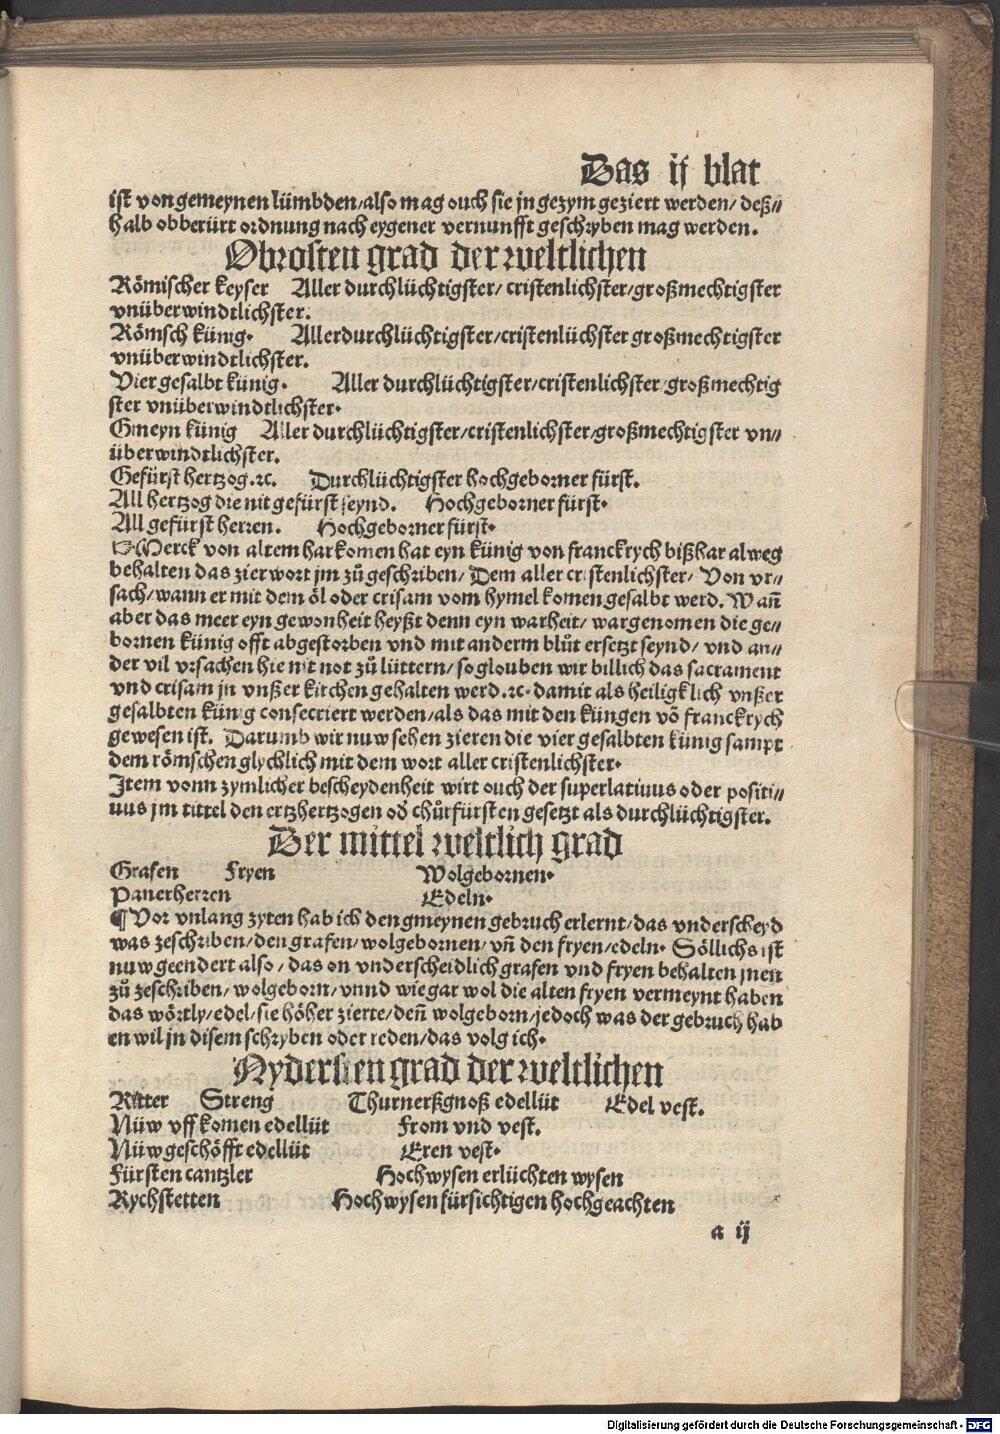 Das ij blat
ist von gemeynen lümbden/also mag ouch sie jn gezym geziert werden/ deß//
halb obberürt ordnung nach eygener vernunfft geschryben mag werden.
Obrosten grad der weltlichen
Römischer keyser Aller durchlüchtigster/ cristenlichster/großmechtigster
vnüberwindtlichster.
Römsch künig. Allerdurchlüchtigster/cristenlüchster großmechtigster
vnüberwindtlichster.
Vier gesalbt künig. Aller durchlüchtigster/cristenlichster/großmechtig
ster vnüberwindtlichster.
Gmeyn künig Aller durchlüchtigster/cristenlichster/großmechtigster vn//
überwindtlichster.
Gefürst hertzog.ꝛc. Durchlüchtigster hochgeborner fürst.
All hertzog die nit gefürst seynd. Hochgeborner fürst.
All gefürst herren. Hochgeborner fürst.
☞Merck von altem harkomen hat eyn künig von franckrych bißhar alweg
behalten das zierwort jm zů geschriben/ Dem aller cristenlichster/ Von vr//
sach/wann er mit dem öl oder crisam vom hymel komen gesalbt werd. Wañ
aber das meer eyn gewonheit heyßt denn eyn warheit/ wargenomen die ge//
bornen künig offt abgestorben vnd mit anderm blůt ersetzt seynd/ vnd an//
der vil vrsachen hie nit not zů lüttern/ so glouben wir billich das sacrament
vnd crisam jn vnßer kirchen gehalten werd.ꝛc. damit als heiligklich vnßer
gesalbten künig consecriert werden/als das mit den küngen võ franckrych
gewesen ist. Darumb wir nuw sehen zieren die vier gesalbten künig sampt
dem römschen glychlich mit dem wort aller cristenlichster.
Item vonn zymlicher bescheydenheit wirt ouch der superlatiuus oder positi//
uus jm tittel den ertzhertzogen oď chůrfürsten gesetzt als durchlüchtigster.
Der mittel weltlich grad
Grafen Fryen Wolgebornen.
Panerherren Edeln.
¶Vor vnlang zyten hab ich den gmeynen gebruch erlernt/das vnderscheyd
was zeschriben/den grafen/wolgebornen/ vñ den fryen/edeln. Söllichs ist
nuw geendert also/das on vnderscheidlich grafen vnd fryen behalten jnen
zů zeschriben/wolgeborn/vnnd wie gar wol die alten fryen vermeynt haben
das wörtly/edel/sie höher zierte/deñ wolgeborn/jedoch was der gebruch hab
en wil jn disem schryben oder reden/das volg ich.
Nydersten grad der weltlichen
Ritter Streng Thurnerßgnoß edellüt Edel vest.
Nüw vffkomen edellüt From vnd vest.
Nüwgeschöfft edellüt Eren vest.
Fürsten cantzler Hochwysen erlüchten wysen
Rychstetten Hochwysen fürsichtigen hochgeachten
a ij
Digitalisierung gefördert durch die Deutsche Forschungsgemeinschaft - DFG